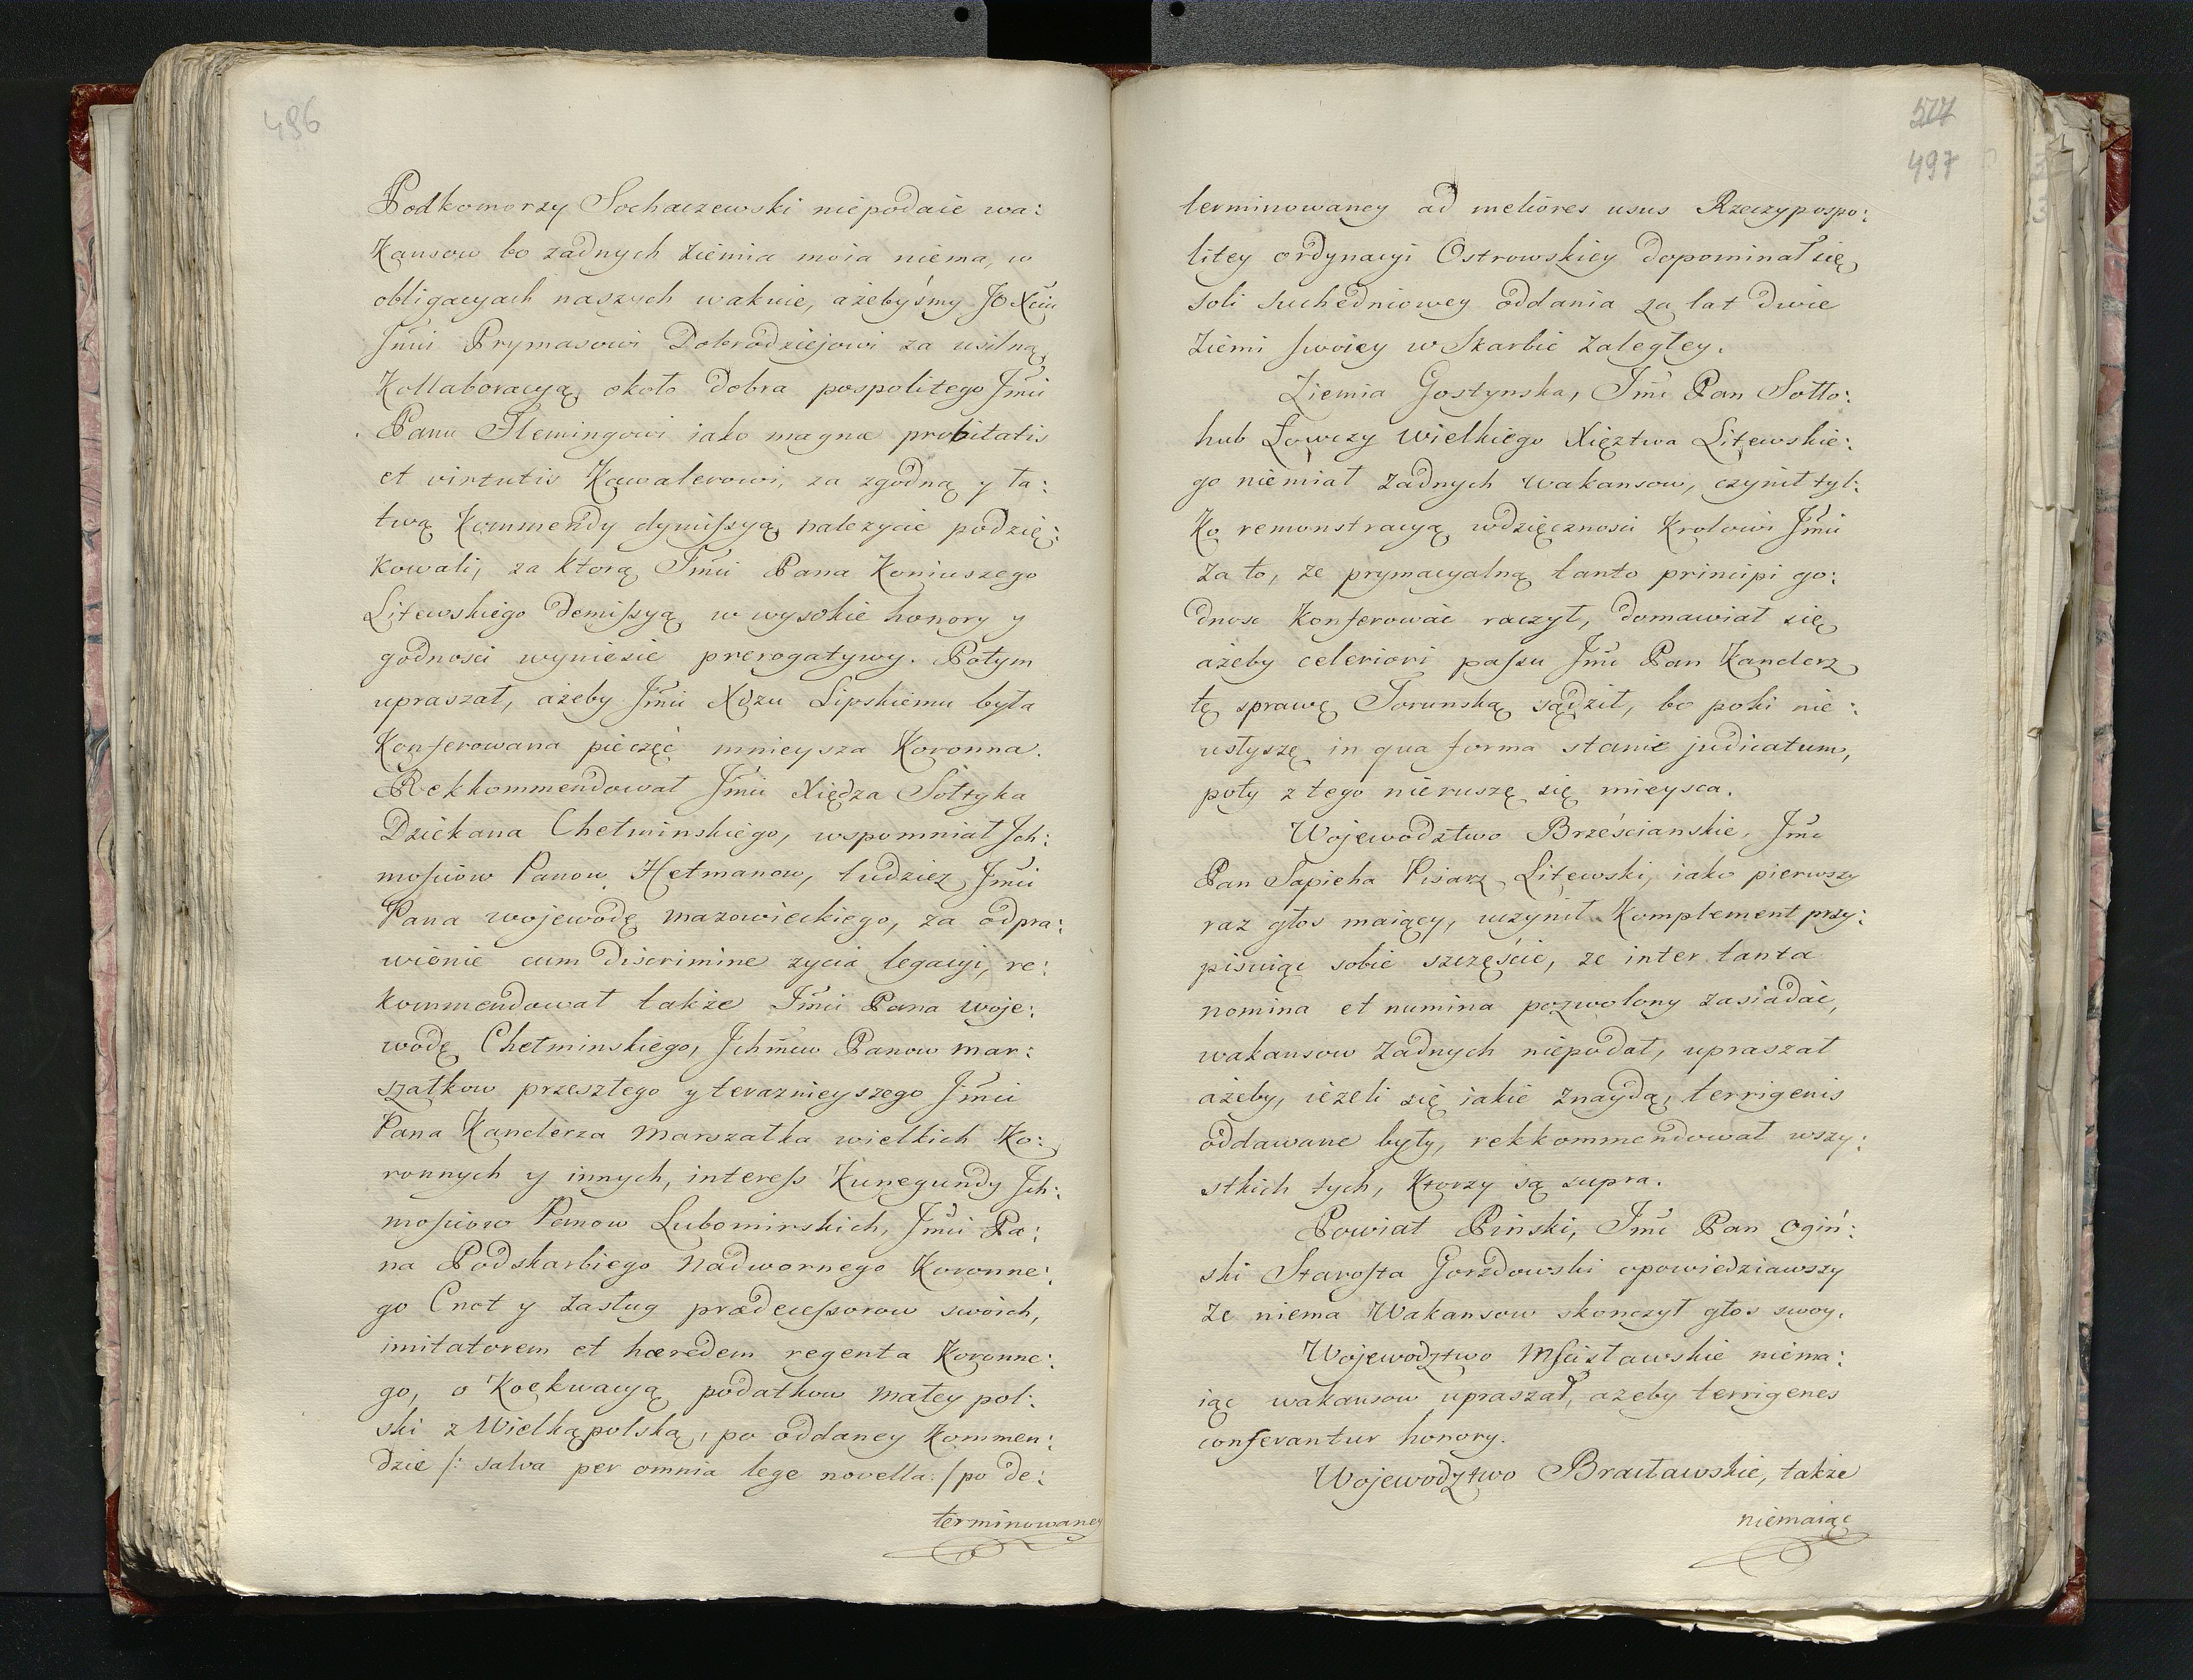 496
Podkomorzy Sochaczewski niepodaie wa:
kansow bo zadnych ziemia moia niema, w
obligacyach naszych wakuie, ażebyśmy JO Xciu
Jmci Prymasowi Dobrodziejowi za usilną
Kollaboracyą około dobra pospolitego Jmci
Panu Flemingowi iako magnæ probitatis
et virtutis Kawalerowi, za zgodną y ła:
twą Kommendy dymissyą należycie podzię:
kowali, za ktorą Jmci Pana Koniuszego
Litewskiego demissyą w wysokie honory y
godnosci wyniesie prerogatywy. Potym
upraszał, ażeby Jmci Xdzu Lipskiemu była
Konferowana pieczęć mnieysza Koronna.
Rekkommendował Jmci Xiędza Sołtyka
Dziekana Chełminskiego, wspomniał Ich:
mosciow Panow Hetmanow, tudziez Jmci
Pana wojewodę mazowieckiego, za odpra:
wienie cum discrimine zycia legacyi, re:
kommendował także Jmci Pana woje:
wodę Chełminskiego, Ichmciow Panow mar:
szałkow przeszłego y teraznieyszego Jmci
Pana Kanclerza Marszałka wielkich Ko:
ronnych y innych, interess Kunegundy Ich:
mosciow Panow Lubomirskich, Jmci Pa:
na Podskarbiego Nadwornego Koronne:
go Cnot y zasług prædecessorow swoich,
imitatorem et hæredem regenta Koronne:
go, o Koękwacyą podatkow małey pol:
ski z Wielkąpolską, po oddaney Kommen:
dzie /: salva per omnia lege novella :/ po de:
terminowaney
577
497
terminowaney ad meliores usus Rzeczypospo:
litey ordynacyi Ostrowskiey dopominał się
soli suchedniowey oddania za lat dwie
Ziemi swoiey w Skarbie zaległey.
Ziemia Gostynska, Jmć Pan Sołło:
hub Łowczy Wielkiego Xięztwa Litewskie:
go niemiał żadnych wakansow, czynił tyl:
ko remonstracyą wdzięcznosci Krolowi Jmci
za to, ze prymacyalną tanto principi go:
dnosc Konferowac raczył, domawiał się
ażeby celeriori passu Jmć Pan Kanclerz
tę sprawę Torunską sądził, bo poki nie:
usłyszę in qua forma stanie judicatum,
poty z tego nieruszę się mieysca.
Wojewodztwo Brześcianskie, Jmć
Pan Sapieha Pisarz Litewski, iako pierwszy
raz głos maiący, uczynił Komplement przy:
pisuiąc sobie szczęście, ze inter tanta
nomina et numina pozwolony zasiadać,
wakansow żadnych niepodał, upraszał
ażeby, ieżeli się iakie znaydą, terrigenis
oddawane były, rekkommendował wszy:
stkich tych, Ktorzy są supra.
Powiat Pinski, Jmć Pan Ogiń:
ski Starosta Gorzdowski opowiedziawszy
ze niema Wakansow skonczył głos swoy.
Wojewodztwo Mscisławskie niema:
iąc wakansow upraszał, ażeby terrigenes
conferantur honory.
Wojewodztwo Bracławskie, także
niemaiąc